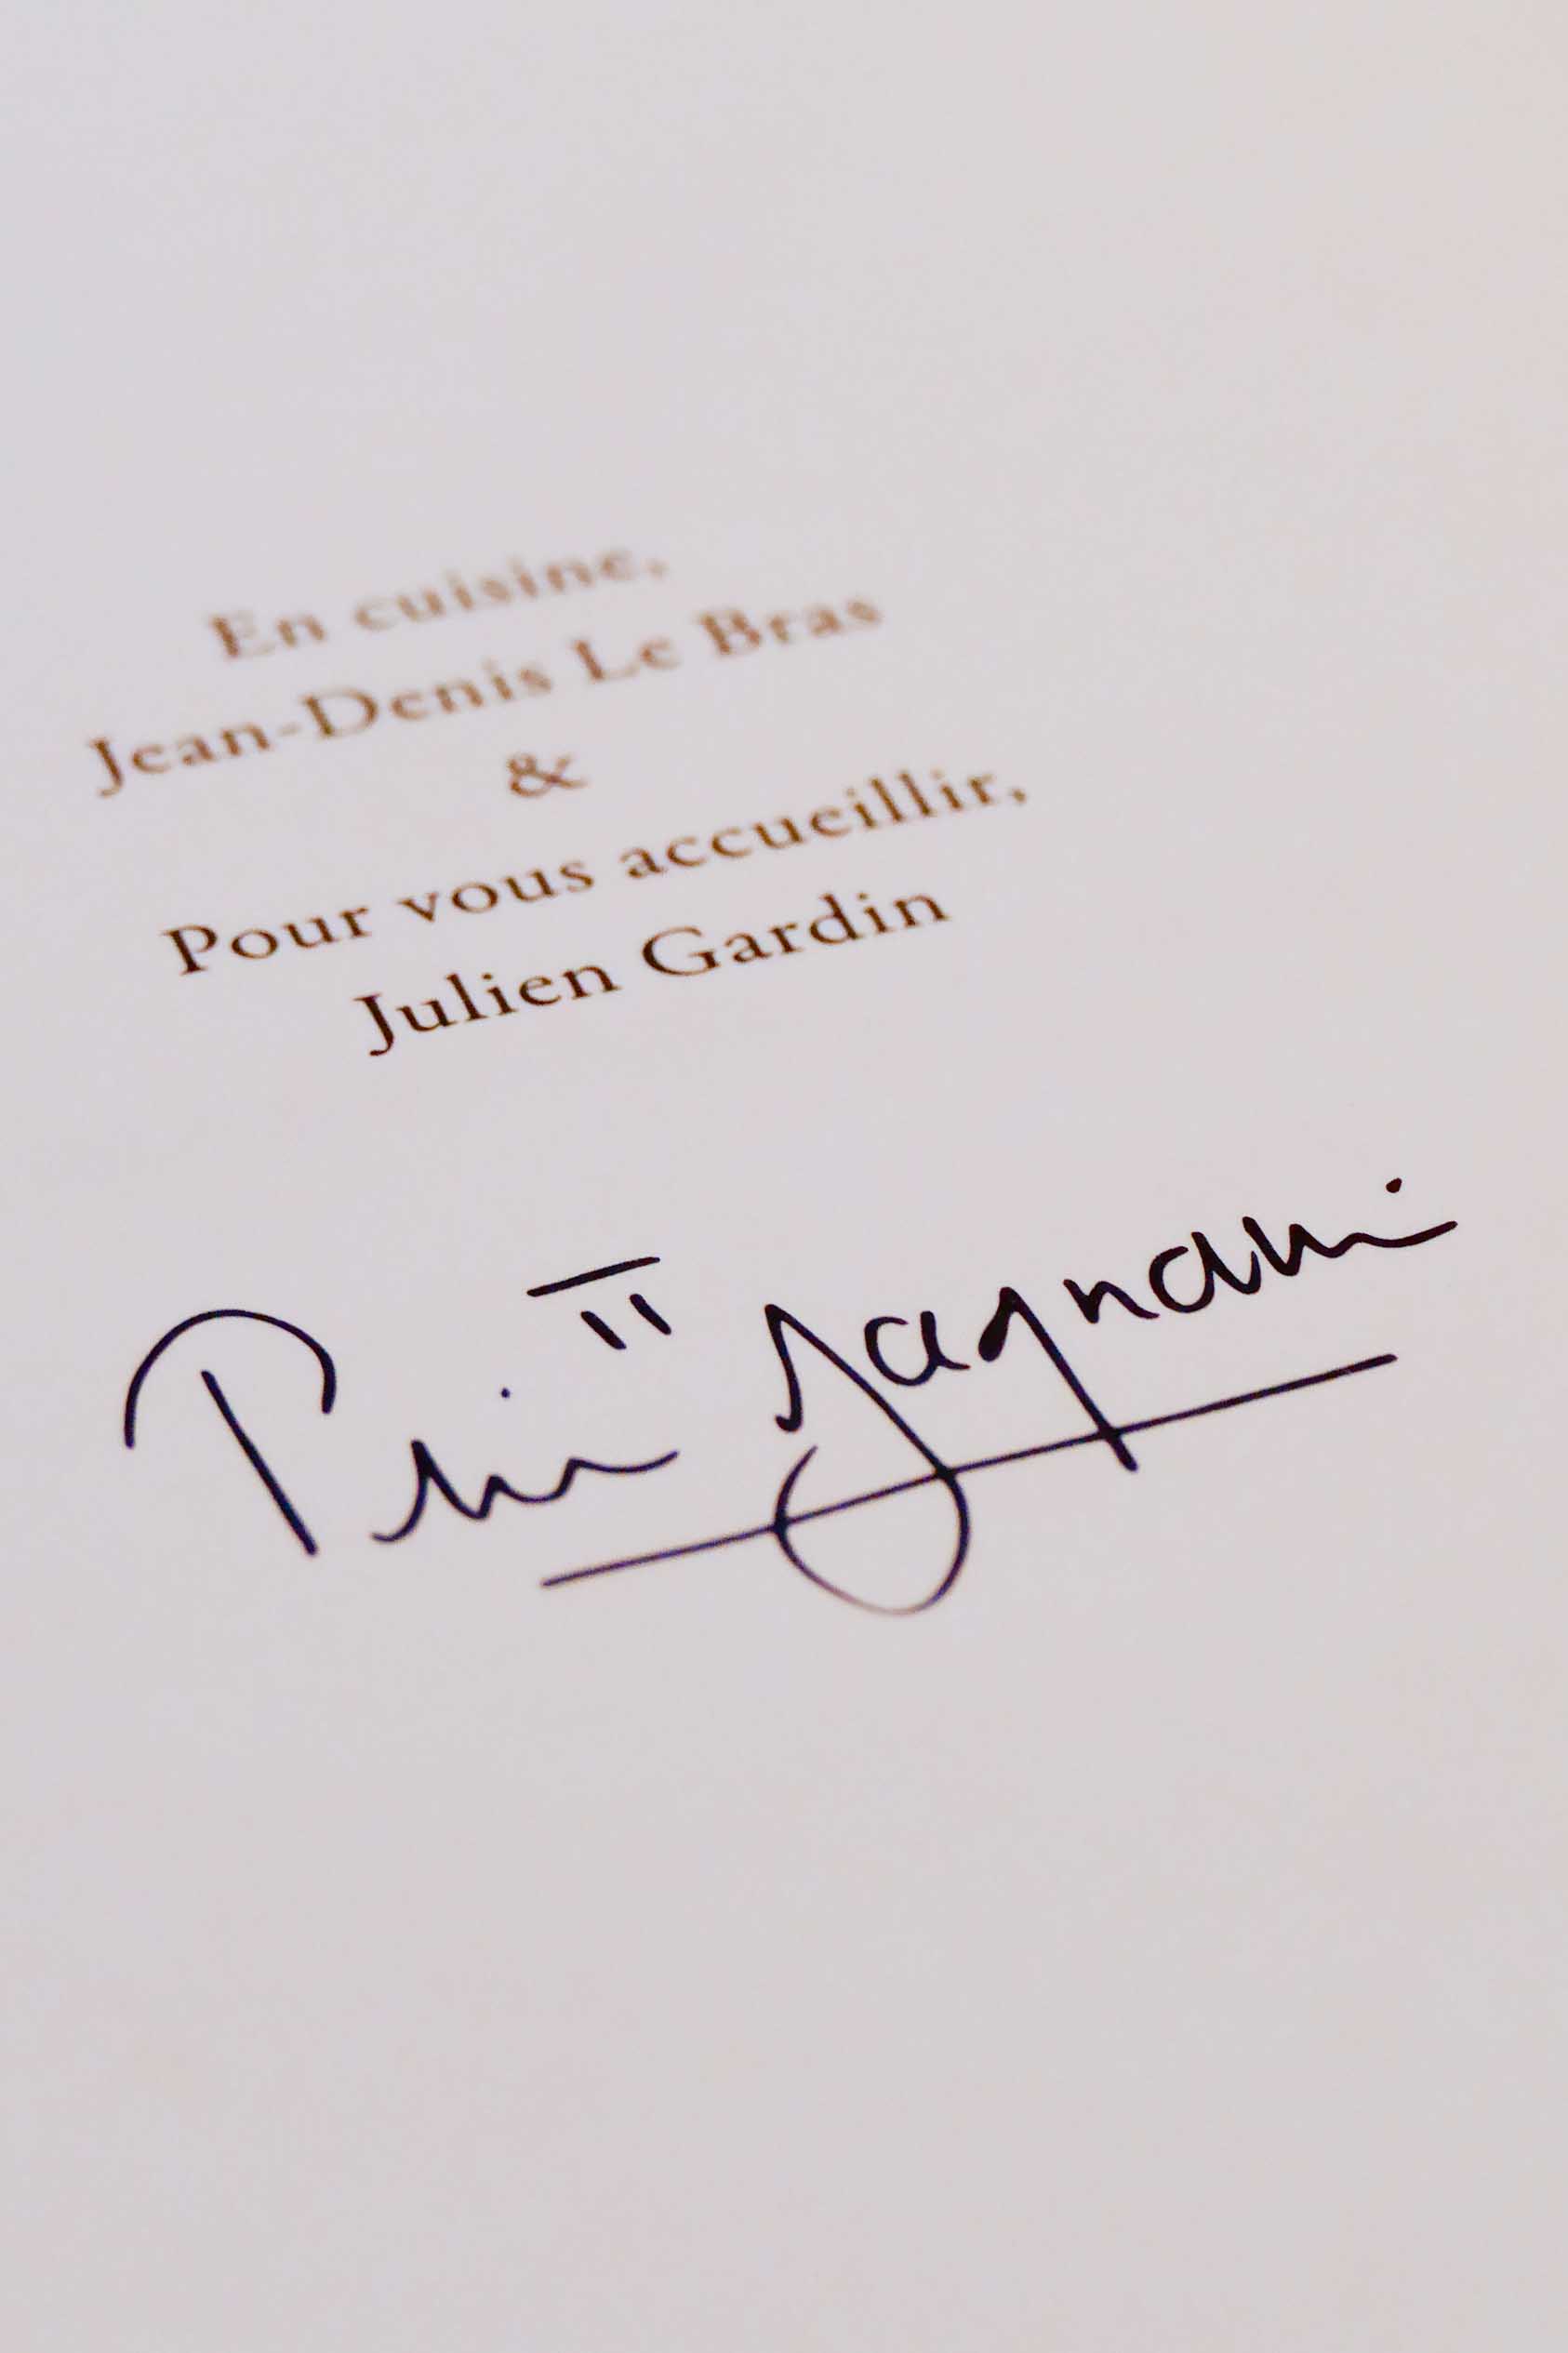 En cuisine,
Jean-Denis Le Bras
&
Pour vous accueillir,
Julien Gardin
Gagnaire